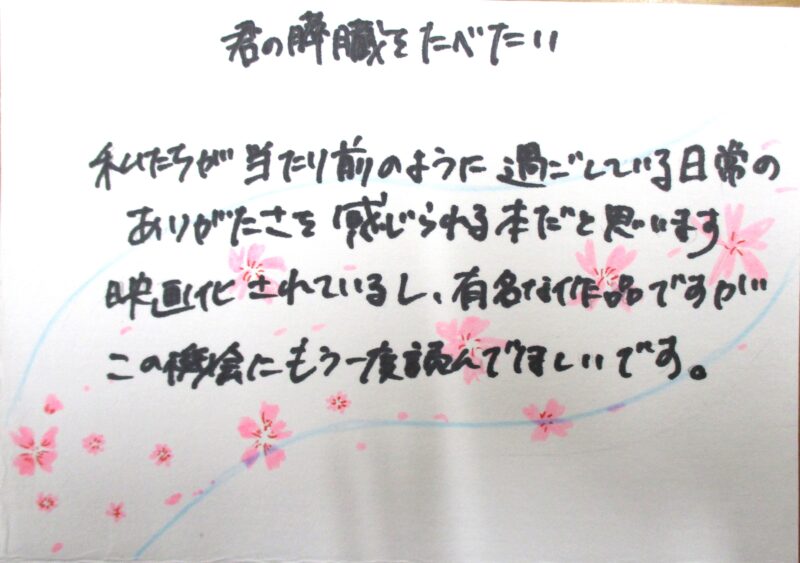 君の膵臓をたべたい
私たちが当たり前のように過ごしている日常の
ありがたさを感じられる本だと思います
映画化されているし、有名な作品ですが
この機会にもう一度読んでほしいです。